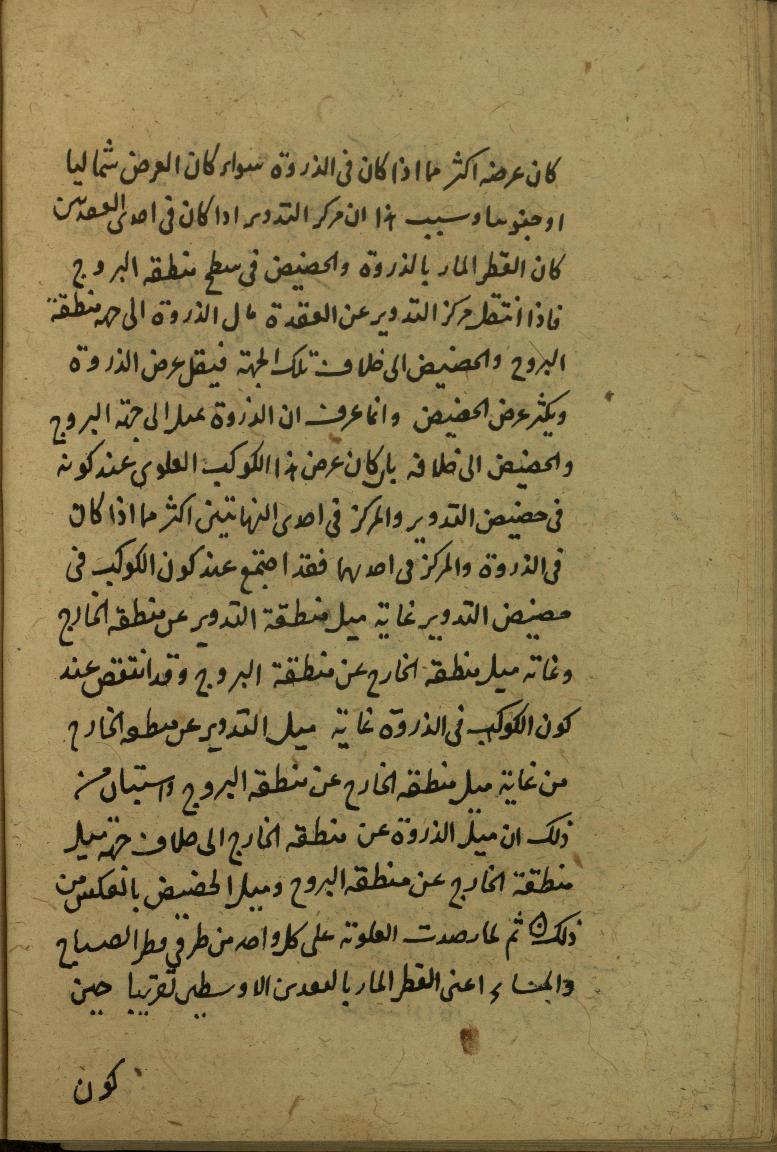 كان عرضه اكثر مما اذا كان فى الذروة سواء كان العرض شماليا
او جنوبيا وسبب هذا ان مركز التدوير اذا كان فى احدى العقدتين
كان القطر المار بالذروة والحضيض فى سطح منطقة البروج
فاذا انتقل مركز التدوير عن العقدة مال الذروة الى جهة منطقة
البروج والحضيض الى خلاف تلك الجهة فيقل عرض الذروة
ويكثر عرض الحضيض وانما عرف ان الذروة تميل الى جهة البروج
والحضيض الى خلافه بان كان عرض هذا الكوكب العلوى عند كونه
فى حضيض التدوير والمركز فى احدى النهايتين اكثر مما اذا كان
فى الذروة والمركز فى احديهما فقد اجتمع عند كون الكوكب فى
حضيض التدوير غاية ميل منطقة التدوير عن منطقة الخارج
وغاية ميل منطقة الخارج عن منطقة البروج وقد انتقص عند
كون الكوكب فى الذروة غاية ميل التدوير عن منطقة الخارج
من غاية ميل منطقة الخارج عن منطقة البروج واستبان من
ذلك ان ميل الذروة عن منطقة الخارج الى خلاف جهة ميل
منطقة الخارج عن منطقة البروج وميل الحضيض بالعكس من
ذلك ثم لما رصدت العلوية على كل واحد من طرفي قطر الصباح
والمساء اعنى القطر المار بالبعدين الاوسطين تقريبا حين
كون